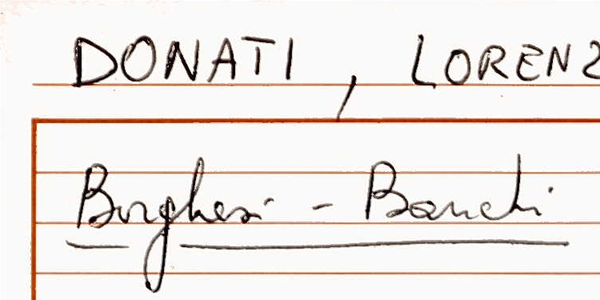 DONATI, LORENZ
Borghesi - Banchi